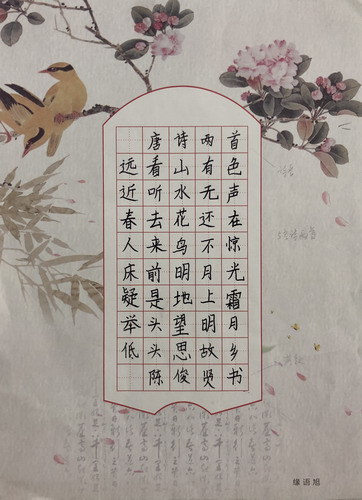 唐诗两首
远看山有色
近听水无声
春去花还在
人来鸟不惊
床前明月光
疑是地上霜
举头望明月
低头思故乡
陈俊贤书
缘语旭